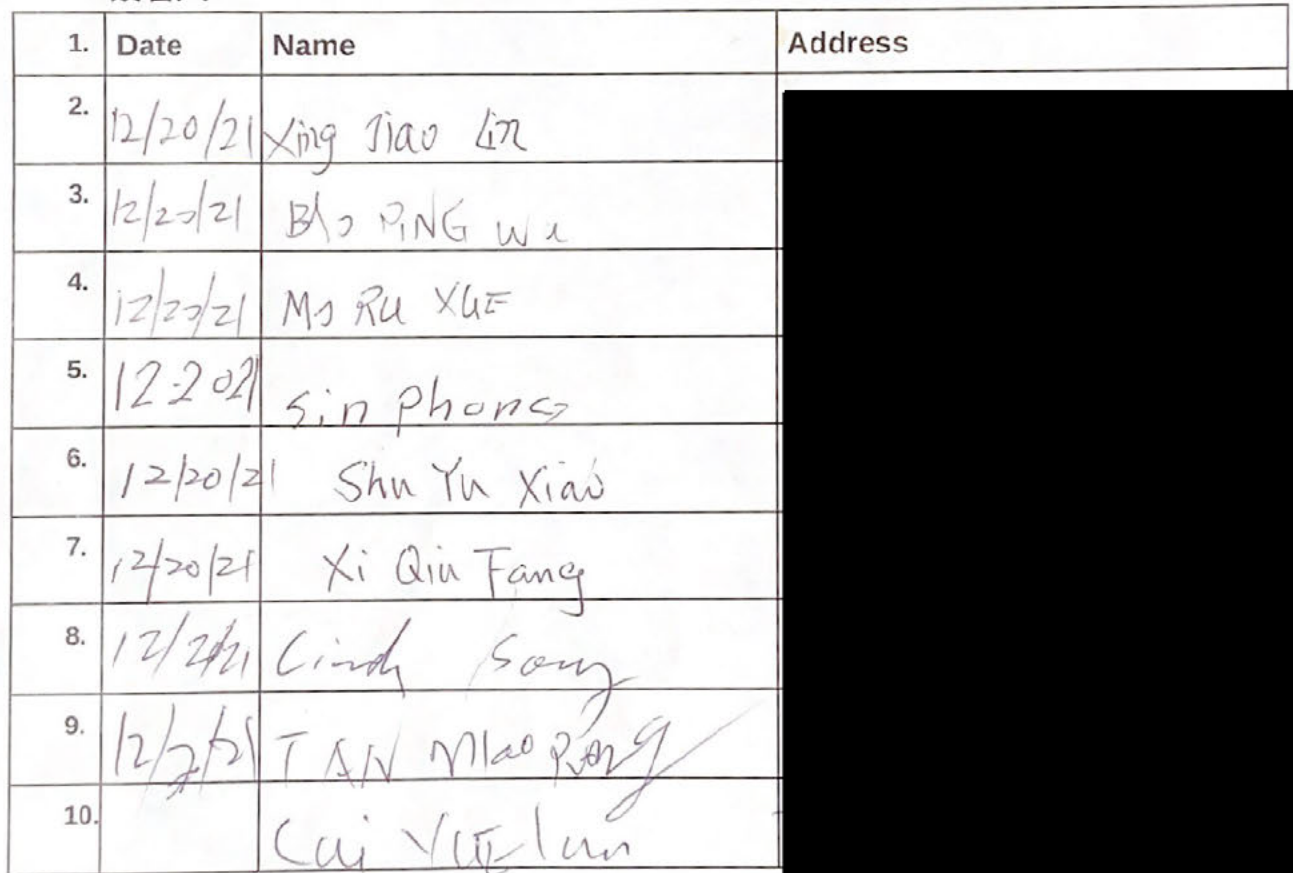 1. Date Name Address
2. 12/20/21 Xing Jiao Lin
3. 12/20/21 BAO PiNG Wu
4. 12/20/21 Mo Ru XUE
5. 12-2021 Sin Phong
6. 12/20/21 Shu Yu Xiao
7. 12/20/21 Xi Qiu Fang
8. Cindy Song
9. TAN Miao
10. Cai YUE